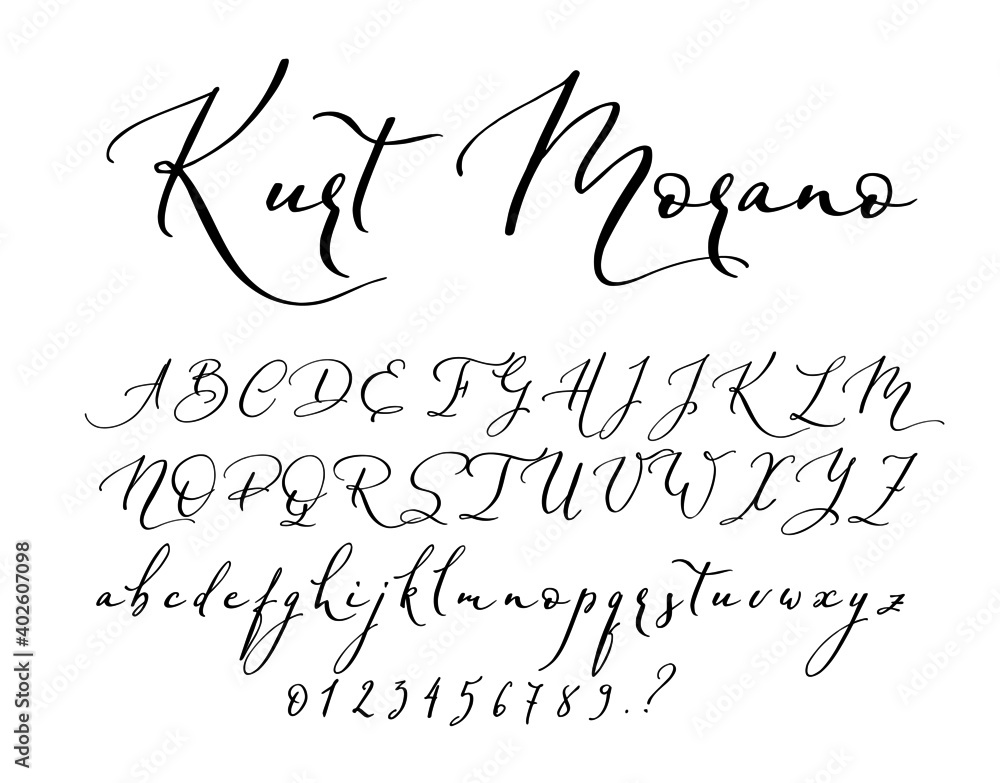 Kurt Morano
A B C D E F G H I J K L M
N O P Q R S T U V W X Y Z
a b c d e f g h i j k l m n o p q r s t u v w x y z
0 1 2 3 4 5 6 7 8 9 . ?
Adobe Stock | #402607098